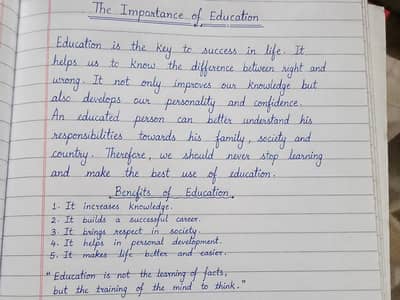 The Importance of Education
Education is the key to success in life. It
helps us to know the difference between right and
wrong. It not only improves our knowledge but
also develops our personality and confidence.
An educated person can better understand his
responsibilities towards his family, society and
country. Therefore, we should never stop learning
and make the best use of education.
Benefits of Education
1. It increases knowledge.
2. It builds a successful career.
3. It brings respect in society.
4. It helps in personal development.
5. It makes life better and easier.
"Education is not the learning of facts,
but the training of the mind to think."